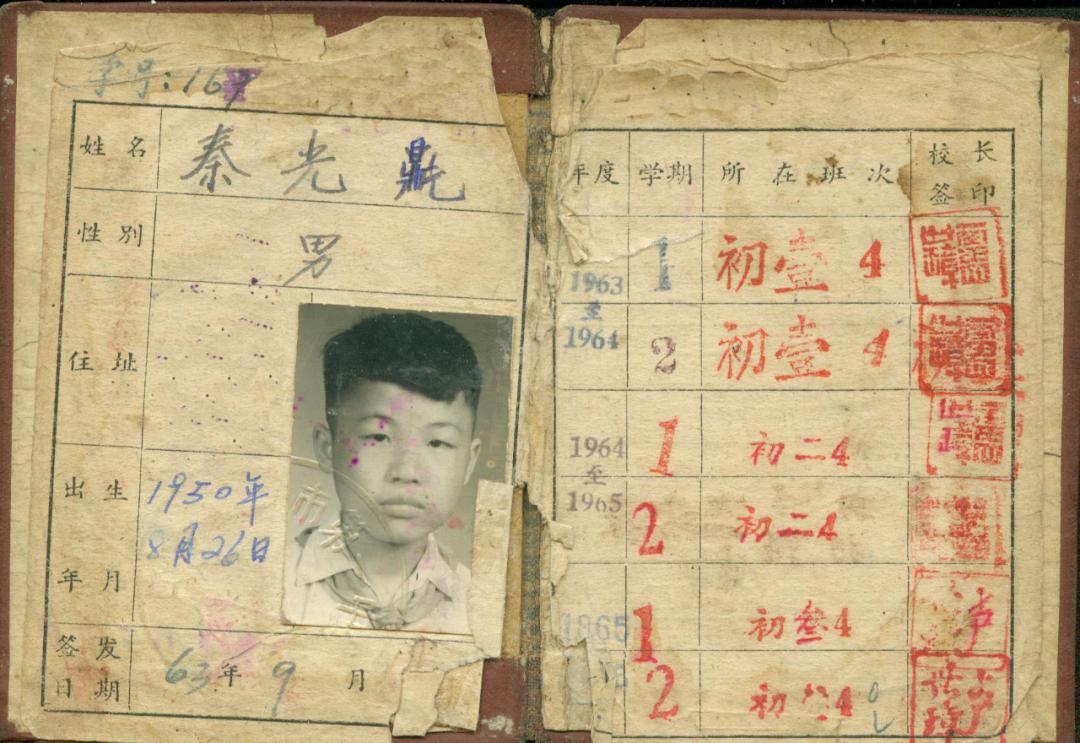 学号:167
姓名 秦光鼎
性别 男
住址
出生年月 1950年8月26日
签发日期 63年9月
年度 学期 所在班次 校长签印
1963至1964 1 初壹4
2 初壹4
1964至1965 1 初二4
2 初二4
1865 1 初叁4
2 初 4